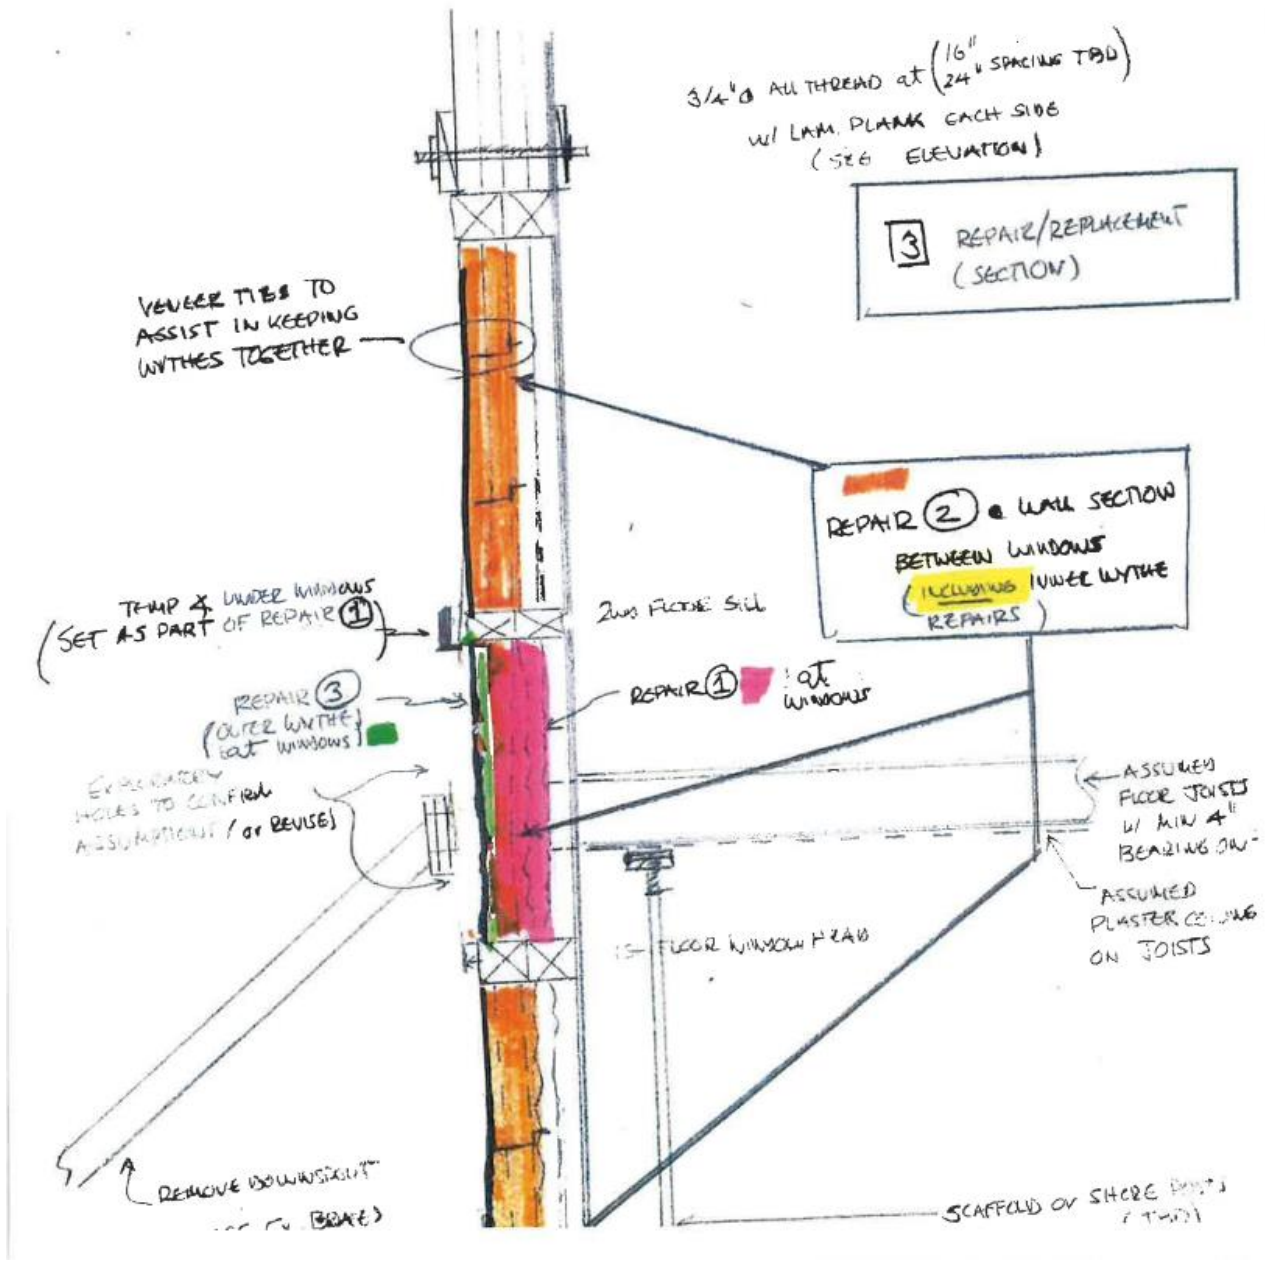 3/4"Ø ALL THREAD at (16" 24" SPACING TBD)
W/ LAM. PLANK EACH SIDE
(SEE ELEVATION)
3 REPAIR/REPLACEMENT
(SECTION)
VENEER TIES TO
ASSIST IN KEEPING
WYTHES TOGETHER
REPAIR 2 @ WALL SECTION
BETWEEN WINDOWS
(INCLUDING INNER WYTHE
REPAIRS)
TEMP UNDER WINDOWS
(SET AS PART OF REPAIR 1)
2ND FLOOR SILL
REPAIR 3
(OUTER WYTHE)
at WINDOWS
REPAIR 1 at
WINDOWS
EXPLORATORY
HOLES TO CONFIRM
ASSUMPTIONS (or REVISE)
ASSUMED
FLOOR JOISTS
W/ MIN 4"
BEARING ON
ASSUMED
PLASTER CEILING
ON JOISTS
FLOOR WINDOW HEAD
REMOVE DOWNSPOUT
BRACE)
SCAFFOLD or SHORE POSTS
(TBD)